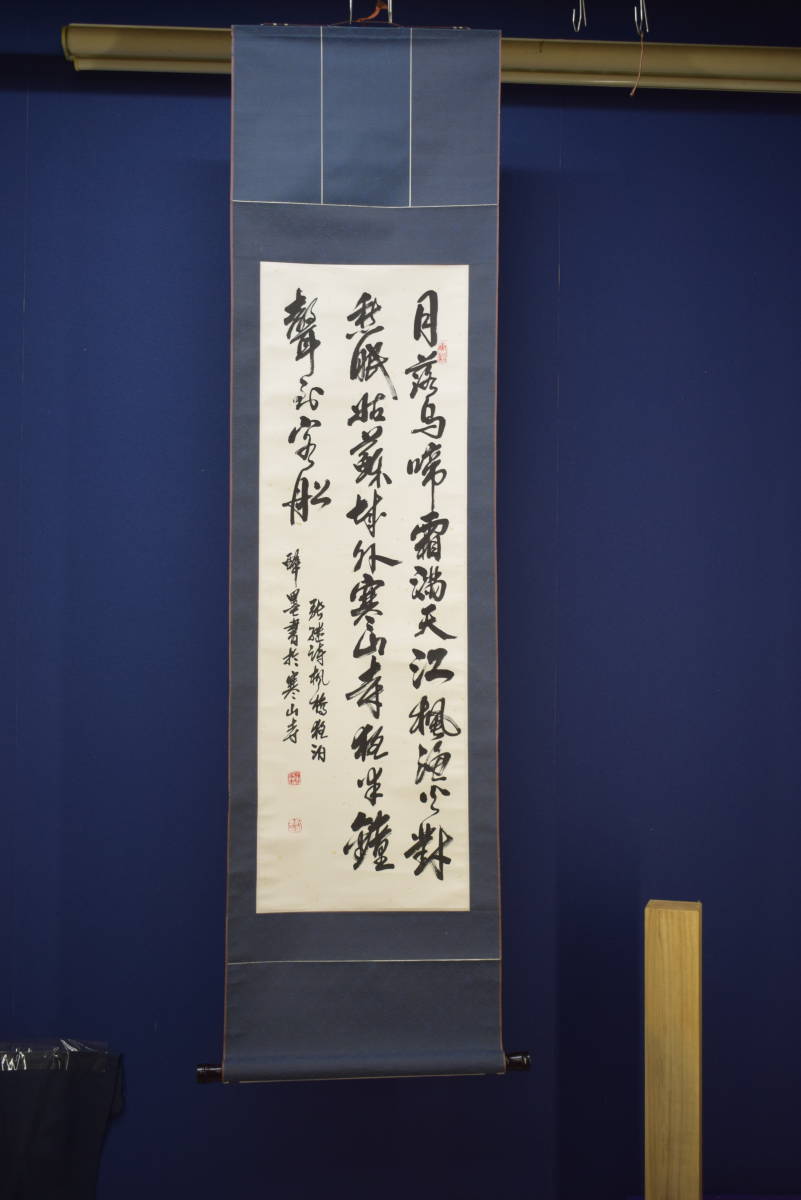 月落烏啼霜滿天江楓漁火對
愁眠姑蘇城外寒山寺夜半鐘
聲到客船
張継詩楓橋夜泊
醉墨書於寒山寺